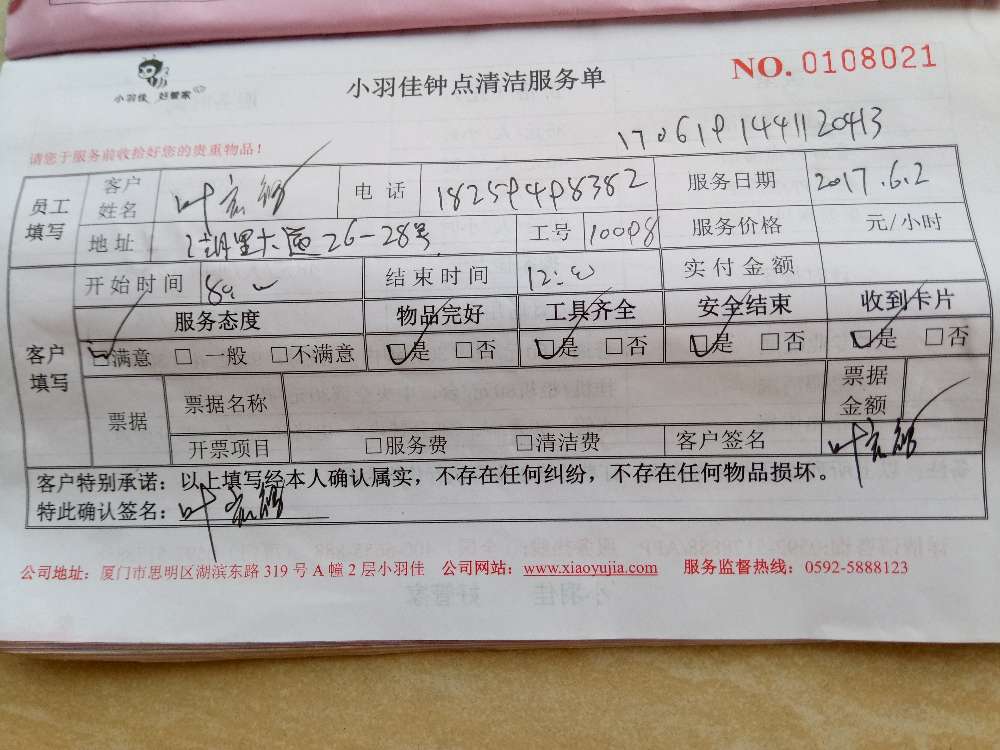 小羽佳 好管家
小羽佳钟点清洁服务单
NO. 0108021
1706191441120413
请您于服务前收拾好您的贵重物品！
员工填写 客户姓名 叶 电话 18259498382 服务日期 2017.6.2
地址 湖里大道26-28号 工号 10098 服务价格 元/小时
客户填写 开始时间 结束时间 实付金额
服务态度 物品完好 工具齐全 安全结束 收到卡片
□满意 □ 一般 □不满意 □是 □否 □是 □否 □是 □否 □是 □否
票据 票据名称 票据金额
开票项目 □服务费 □清洁费 客户签名 叶
客户特别承诺：以上填写经本人确认属实，不存在任何纠纷，不存在任何物品损坏。
特此确认签名：叶
公司地址：厦门市思明区湖滨东路 319 号 A 幢 2 层小羽佳 公司网站：www.xiaoyujia.com 服务监督热线：0592-5888123